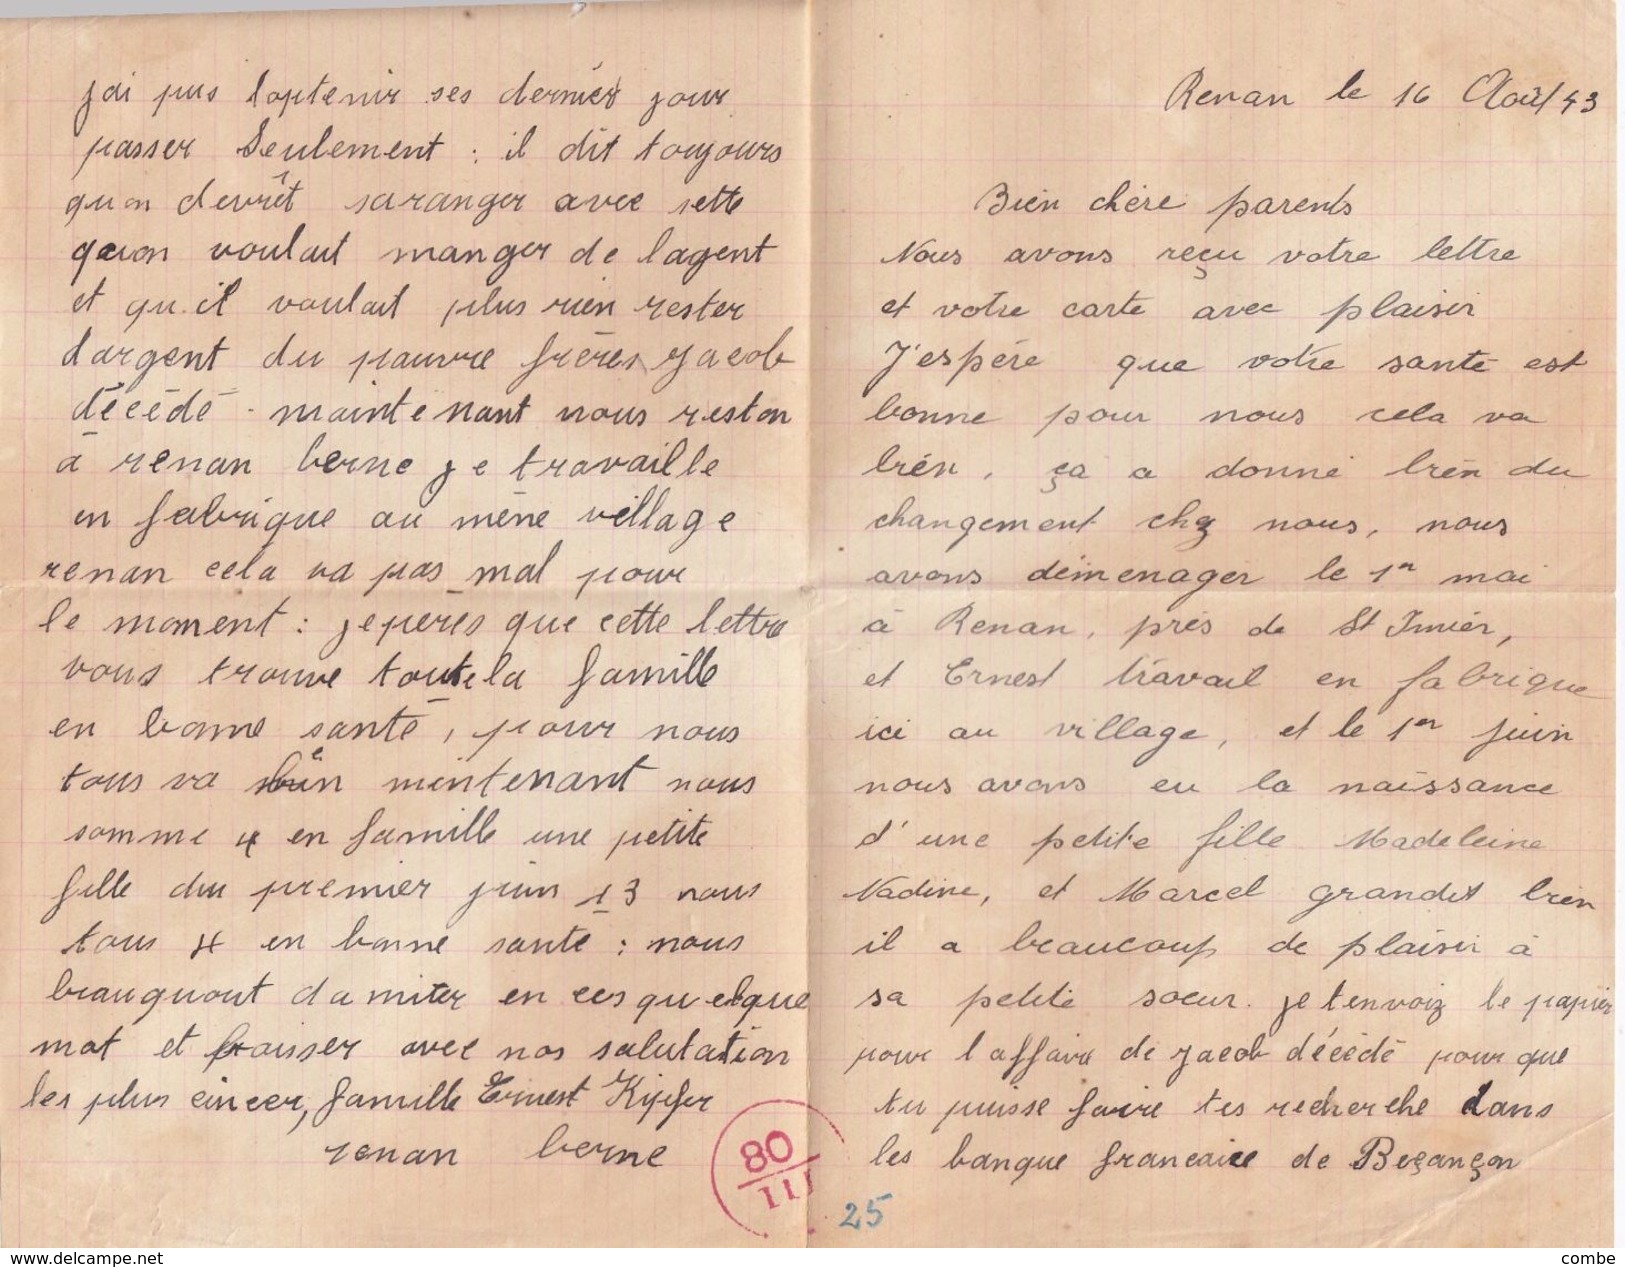 Renan le 16 Août 43
Bien chère parents
Nous avons reçu votre lettre
et votre carte avec plaisir
J'espére que votre santé est
bonne pour nous cela va
bién, ça a donné bién du
changement chz nous, nous
avons démenager le 1er mai
à Renan, prés de St Imiér,
et Ernest travail en fabrique
ici au village, et le 1er juin
nous avons eu la naissance
d'une petite fille Madeleine
Nadine, et Marcel grandit bien
il a beaucoup de plaisir à
sa petite soeur. je t'envoiz le papiér
pour laffaire de Jacob décédé pour que
tu puisse faire tes recherche dans
les banque francaice de Beçançon
jai pus loptenir ses derniér jour
passer Seulement : il dit toujours
quon devrêt saranger avec sette
quon voulait manger de lagent
et qu.il voulait plus rien rester
dargent du pauvre fréres Jacob
décédé - maintenant nous reston
à renan berne je travaille
en fabrique au mêne village
renan cela va pas mal pour
le moment : jeperes que cette lettre
vous trouve toute la famille
en bonne santé, pour nous
tous va bien mintenant nous
somme 4 en famille une petite
fille du premier juin 43 nous
tous 4 en bonne santé : nous
beauquout damiter en ces quelque
mot et baisser avec nos salutation
les plus cincer, famille Ernest Kipfer
renan berne
80
111
25
delcampe.net
combe